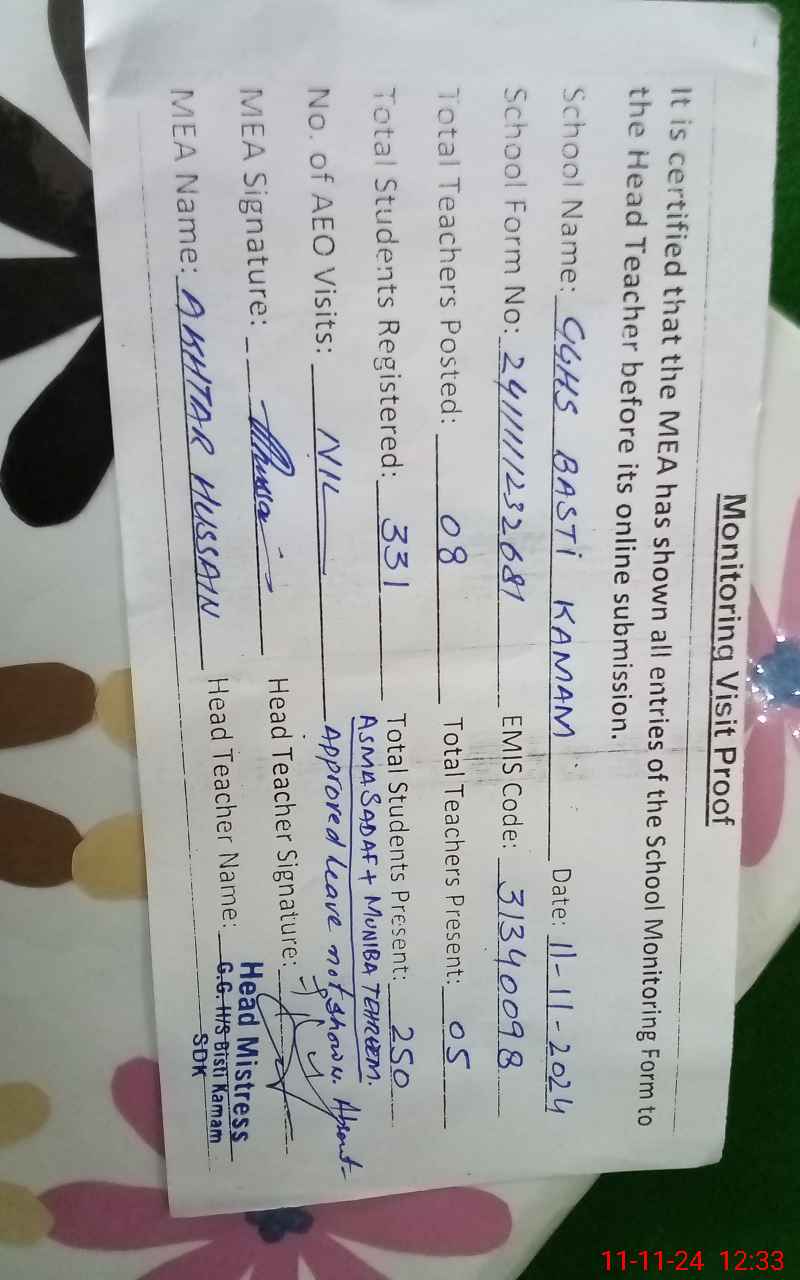 Monitoring Visit Proof
It is certified that the MEA has shown all entries of the School Monitoring Form to
the Head Teacher before its online submission.
School Name: GGHS BASTi KAMAM Date: 11-11-2024
School Form No: 2411111232681 EMIS Code: 31340098
Total Teachers Posted: 08 Total Teachers Present: 05
Total Students Registered: 331 Total Students Present: 250
ASMA SADAF + MUNIBA
No. of AEO Visits: NIL Approved leave not shown. Absent
MEA Signature: Head Teacher Signature:
MEA Name: AKHTAR HUSSAIN Head Teacher Name:
Head Mistress
G.G. H/S Bisti Kamam
SDK
11-11-24 12:33